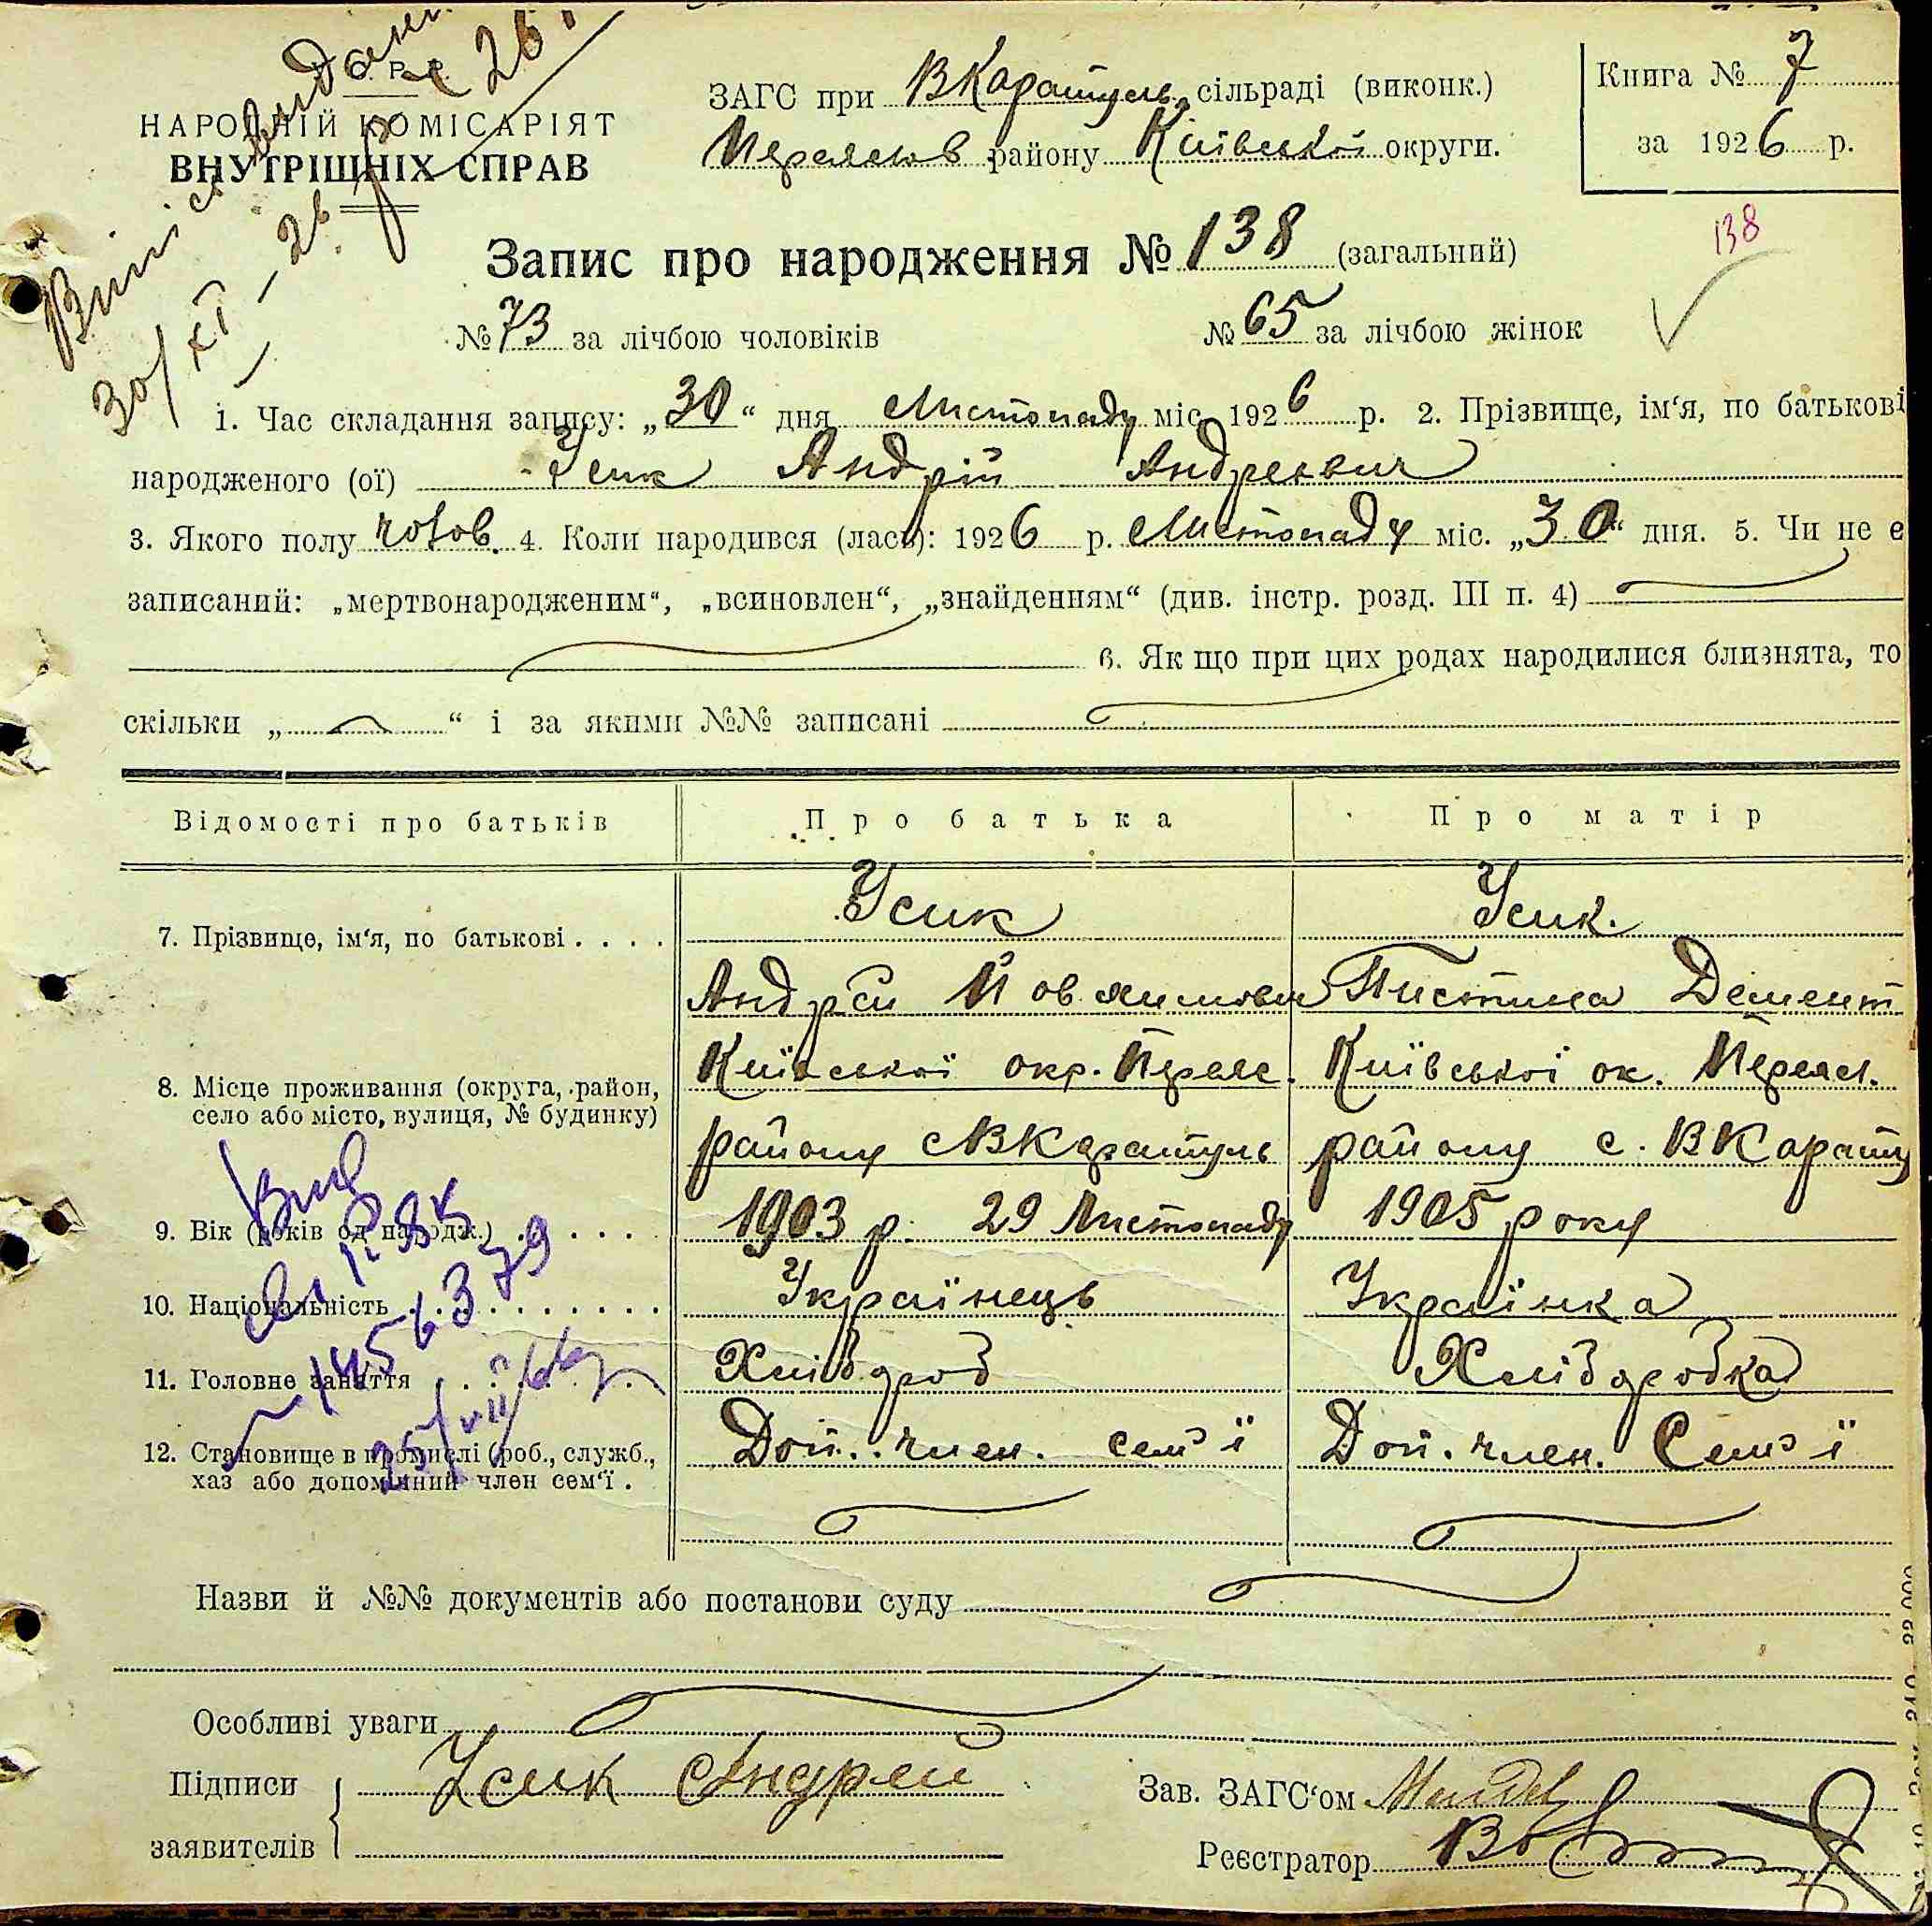 У. С. Р. Р.
НАРОДНІЙ КОМІСАРІЯТ
ВНУТРІШНІХ СПРАВ
Випись видана
30/XI – 26 р.
ЗАГС при ВКаратуль сільраді (виконк.)
Переяслов району Київської округи.
Книга № 7
за 1926 р.
138
Запис про народження № 138 (загальний)
№ 73 за лічбою чоловіків № 65 за лічбою жінок
1. Час складання запису: „30“ дня Листопаду міс. 1926 р. 2. Прізвище, ім‘я, по батькові
народженого (ої) Усик Андрій Андреєвич
3. Якого полу чолов. 4. Коли народився (лась): 1926 р. Листопаду міс. „30“ дня. 5. Чи не є
записаний: „мертвонародженим“, „всиновлен“, „знайденням“ (див. інстр. розд. III п. 4)
6. Як що при цих родах народилися близнята, то
скільки „ “ і за якими №№ записані
Відомості про батьків Про батька Про матір
7. Прізвище, ім‘я, по батькові . . . . Усик Усик.
Андрій Йовхимович Пистина Демент
8. Місце проживання (округа, район, Київської окр. Переяс. Київської ок. Переясл.
село або місто, вулиця, № будинку) району с ВКаратуль району с. ВКарату
9. Вік (років од народж.) . . . . . 1903 р. 29 Листопаду 1905 року
10. Національність . . . . . . . . . Українець Українка
11. Головне заняття . . . . . . Хлібороб Хліборобка
12. Становище в промислі (роб., служб., Доп. член. сем'ї Доп. член. Сем'ї
хаз або допоміжний член сем‘ї .
Назви й №№ документів або постанови суду
Особливі уваги
Підписи Усик Андрей Зав. ЗАГС‘ом
заявителів Реєстратор